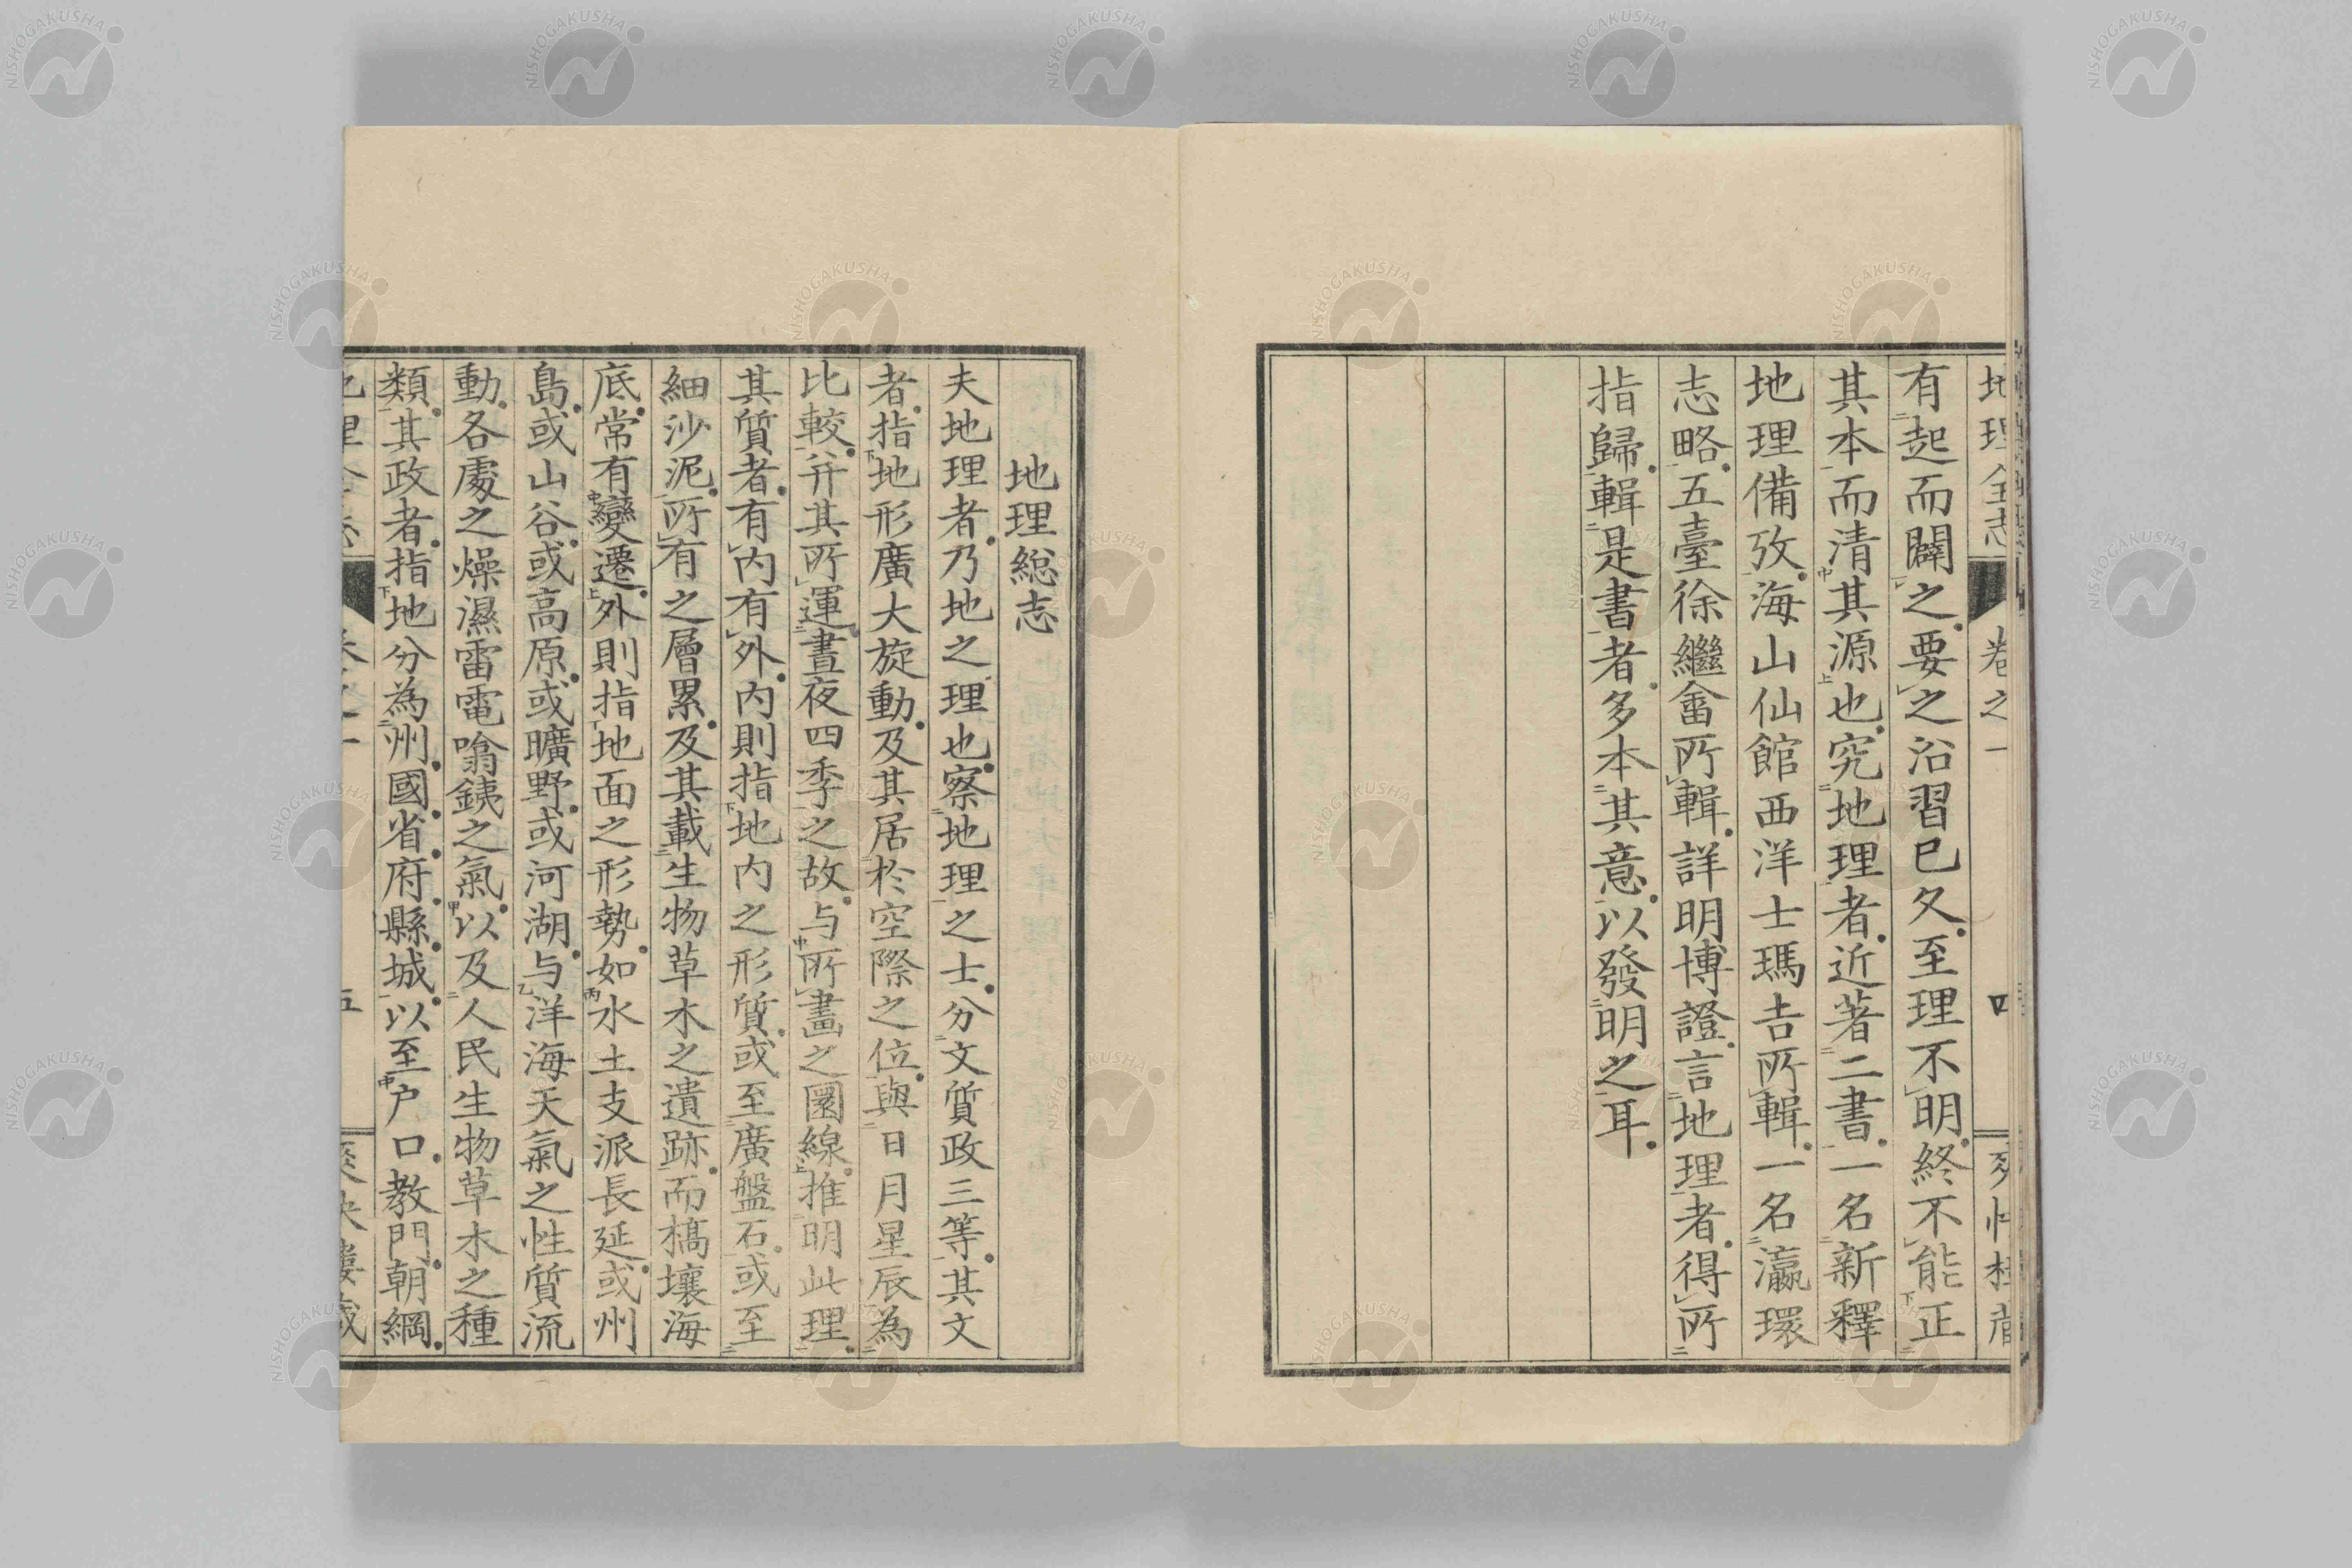 地理全志 卷之一 四
有起而闢之要之沿習已久至理不明終不能正
其本而清其源也究地理者近著二書一名新釋
地理備攷海山仙館西洋士瑪吉所輯一名瀛環
志略五臺徐繼畬所輯詳明博證言地理者得所
指歸輯是書者多本其意以發明之耳
地理総志
夫地理者乃地之理也察地理之士分文質政三等其文
者指地形廣大旋動及其居於空際之位與日月星辰為
比較并其所運晝夜四季之故与所畫之圜線推明此理
其質者有内有外内則指地内之形質或至廣盤石或至
細沙泥所有之層累及其載生物草木之遺跡而槁壤海
底常有變遷外則指地面之形勢如水土支派長延或州
島或山谷或高原或曠野或河湖与洋海天氣之性質流
動各處之燥濕雷電噏銕之氣以及人民生物草木之種
類其政者指地分為州國省府縣城以至户口教門朝綱
NISHOGAKUSHA